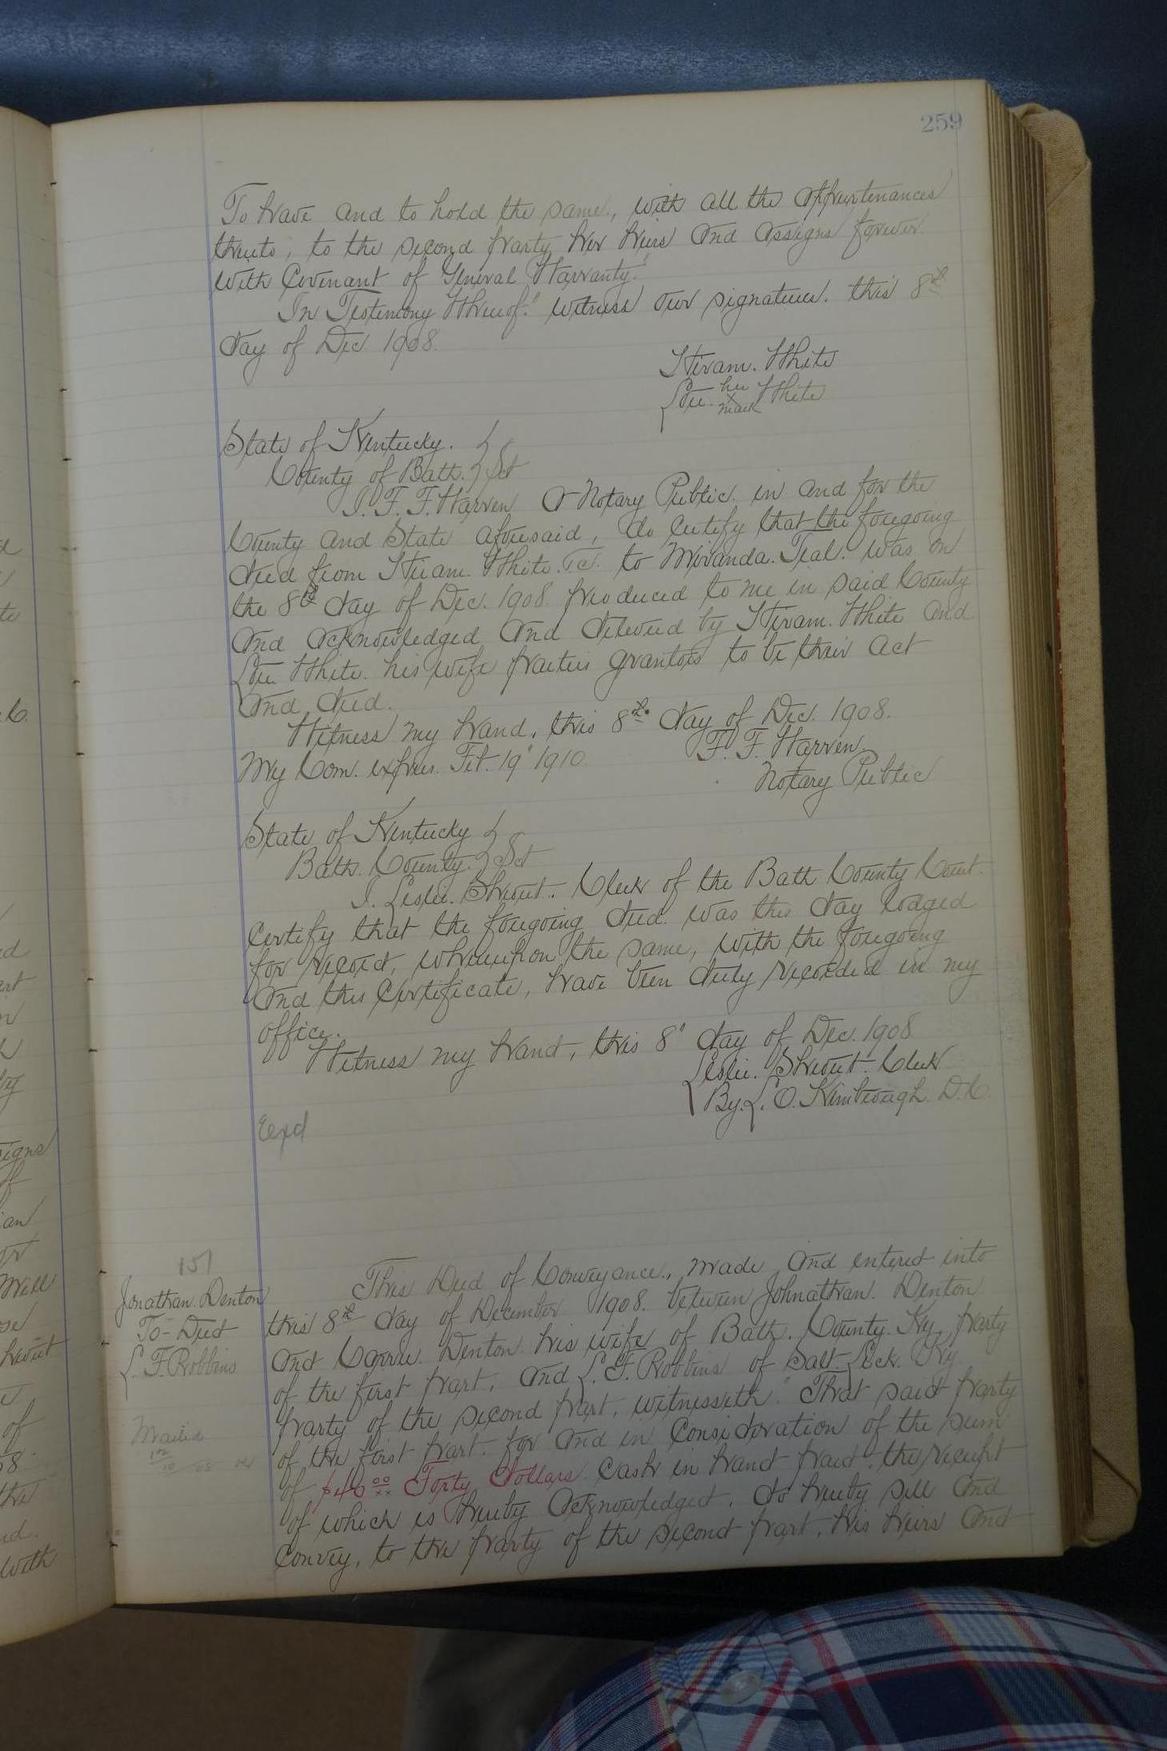 259
To have and to hold the same, with all the appurtenances
thereto, to the second party, her heirs and assigns forever
with Covenant of "General Warranty."
In Testimony Whereof." witness our signatures. this 8th
day of Dec 1908.
Hiram. White
Lou. her x mark White
State of Kentucky. }
County of Bath. } Sct
I. F. F. Warren a Notary Public. in and for the
County and State aforesaid, do certify that the foregoing
deed from Hiram. White. &c. to Miranda. Teal. was on
the 8th day of Dec. 1908. produced to me in said County
and acknowledged and delivered by Hiram. White and
Lou. White. his wife parties grantors to be their act
and deed.
Witness my hand, this 8th day of Dec. 1908.
My Com. expires. Feb. 19" 1910. F. F. Warren.
Notary Public
State of Kentucky }
Bath. County. } Sct
I. Leslie. Shrout. Clerk of the Bath County Court.
Certify that the foregoing deed. was this day lodged
for record, whereupon the same, with the foregoing
and this Certificate, have been duly recorded in my
office.
Witness my hand, this 8" day of Dec. 1908
Leslie. Shrout. Clerk
By. L. O. Kimbrough. D.C.
Exd
151
Jonathan. Denton
To - Deed
L. F. Robbins
Mailed
This Deed of Conveyance, made and entered into
this 8th day of December 1908. between Johnathan. Denton
and Carrie. Denton his wife of Bath. County. Ky. party
of the first part, and L. F. Robbins of Salt. Lick. Ky.
party of the second part, witnesseth" That said party
of the first part. for and in Consideration of the sum
of $40.00 Forty Dollars. Cash in hand paid, the receipt
of which is hereby acknowledged, do hereby sell and
convey, to the party of the second part, his heirs and